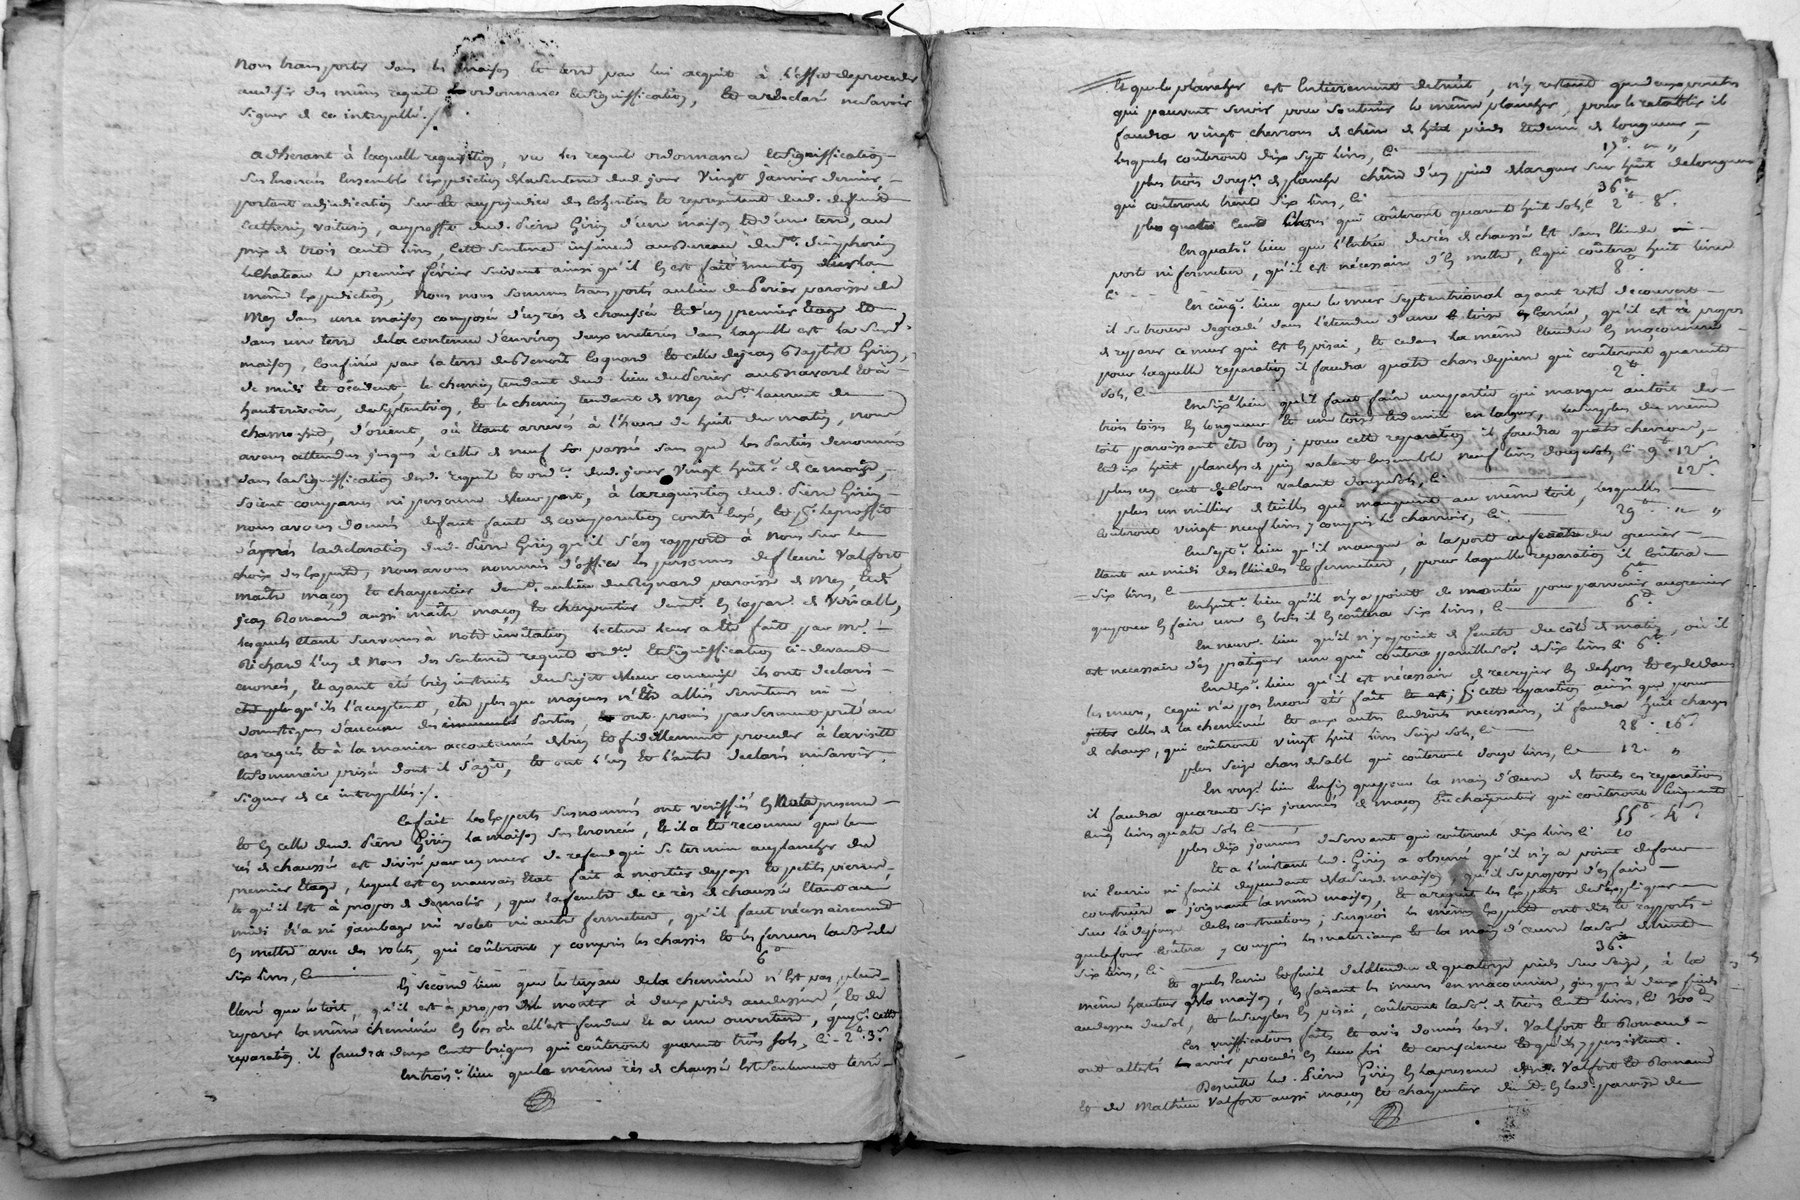 nous transporter dans les maison et terre par lui acquit à l'effet de proceder
aux fins des mêmes requete ordonnance et signiffication, et a déclaré ne savoir
signer de ce interpellé./.
adherant à laquelle requisition, vu les requete ordonnance et signiffication
sus énoncés ensemble l'expedition de la sentence dud. jour vingt janvier dernier,
portant adjudication sur et au prejudice des cohéritiers et representant dud. deffunt
Catherin voiturin, au proffit dud. Pierre Girin d'une maison et d'une terre, au
prix de trois cent livres, cette sentence insinuée au Bureau de St. simphorien
le chateau le premier février suivant ainsi qu'il en est fait mention sur la
même expedition, nous nous sommes transportés au lieu du Perier paroisse de
Mey dans une maison composée d'un rès de chaussée et d'un premier étage et
dans une terre de la contenue d'environ deux meterés dans laquelle est la susd.
maison, confinée par la terre de Benoit Coquard et celle de Jean Baptiste Girin,
de midi et occident, le chemin tendant dud. lieu du Perier à
hauterivoire, de septentrion, et le chemin tendant de Mey à St. Laurent de
chamousset, d'orient, où étant arrivés à l'heure de huit du matin, nous
avons attendus jusques à celle de neuf passée sans que les Parties denommés
dans la signiffication desd. requete et ordce. dud. jour vingt huit de ce mois,
soient comparus ni personne de leur part, à la requisition dud. Pierre Girin
nous avons donnés deffaut faute de comparution contr'eux, et pr. le proffit
d'après la declaration dud. Pierre Girin qu'il s'en rapporte à nous sur le
choix des Experts, nous avons nommés d'office les personnes de fleuri Valfort
maitre maçon et charpentier demt. au lieu du Reynard paroisse de Mey, et de
jean Romand aussi maitre maçon et charpentier demt. en la par. de
lesquels étant survenus à notre invitation lecture leur a été faite par Mr.
Richard l'un de nous des sentence requete ordce. et signiffication ci-devant
énoncés, et ayant été bien instruits du sujet de leur convenue ils ont declarés
qu'ils l'acceptent, etre plus que majeurs n'être alliés serviteurs ni
domestiques d'aucune des Parties, et ont promis par serment prêté au
cas requis et à la maniere accoutumée de bien et fidellement proceder à la visitte
et sommaire prisée dont il s'agit, et ont l'un et l'autre declarés ne savoir
signer de ce interpellés./.
Ce fait les Experts susnommés ont veriffiés en notre presence
et en celle dud. Pierre Girin la maison sus énoncée, et il a été reconnu que le
rès de chaussée est divisé par un mur de refend qui se termine au plancher du
premier étage, lequel est en mauvais état fait à mortier de pays et petits pierres,
et qu'il est à propos de demolir, que la fenetre de ce rès de chaussée étant au
midi n'a ni jambage ni volet ni autre fermeture, qu'il faut nécessairement
en mettre avec des volets, qui coûteront y compris les chassis et les ferrures la somme de
six livres, ci 6#
En second lieu que le tuyau de la cheminée n'est pas plus
élevé que le toit, qu'il est à propos de monter à deux pieds audessus, et de
reparer la même cheminée en bas où elle est fendue et a une ouverture, que pr. cette
reparation il faudra deux cents briques qui coûteront quarante trois sols, ci - 2# 3s
En trois. lieu que le même rès de chaussée est seulement terré
et que le plancher est entierement detruit, n'y restant que deux poutres
qui peuvent servir pour soutenir le même plancher, pour le retablir il
faudra vingt chevrons de chêne de huit pieds et demi de longueur,
lesquels coûteront dix sept livres, ci 17# " "
plus trois douzs. de planche chêne d'un pied de largeur sur huit de longueur
qui coûteront trente six livres, ci 36#
plus quatre cent clous qui coûteront quarante huit sols, ci 2# 8s
En quatr. lieu que l'entrée du rès de chaussée est sans
porte ni fermeture, qu'il est nécessaire d'en mettre, ce qui coûtera huit livres
ci 8#
En cinq. lieu que le mur septentrional ayant resté decouvert
il se trouve degradé dans l'étendue d'une toise en carré, qu'il est à propos
de reparer ce mur qui est en pisai, et ce dans la même étendue en maçonnerie
pour laquelle reparation il faudra quatre chars de pierre qui coûteront quarante
sols, ci 2#
En six. lieu qu'il faut faire une partie qui manque au toit de
trois toises en longueur et une toise et demie en largeur, le surplus du même
toit paroissant être bon; pour cette reparation il faudra quatre chevrons,
et dix huit planches de pin valant ensemble neuf livres douze sols, ci 9# 12s
plus un cent de clous valant douze sols, ci 12s
plus un millier de tuilles qui manquent au même toit, lesquelles
coûteront vingt neuf livres y compris le charroir, ci 29# " "
En sept. lieu qu'il manque à la porte ou fenetre du grenier
étant au midi des et fermeture, pour laquelle reparation il coûtera
six livres, ci 6#
En huit. lieu qu'il n'y a point de montée pour parvenir au grenier
que pour en faire une en bois il en coûtera six livres, ci 6#
En neuv. lieu qu'il n'y a point de fenetre du côté de matin, où il
est necessaire d'en pratiquer une qui coûtera pareille so. de six livres ci 6#
En dix. lieu qu'il est nécessaire de recrepir en dehors et en dedans
les murs, ce qui n'a pas encore été fait; pr. cette reparation ainsi que pour
celles de la cheminée et aux autres endroits necessaires, il faudra huit charges
de chaux, qui coûteront vingt huit livres seize sols, ci 28# 16s
plus seize chars de sable qui coûteront douze livres, ci 12. "
En onz. lieu enfin que pour la main d'œuvre de toutes ces reparations
il faudra quarante six journées de maçon et charpentier qui coûteront cinquante
cinq livres quatre sols ci 55# 4s
plus dix journées de servant qui coûteront dix livres ci 10
Et à l'instant led. Girin a observé qu'il n'y a point de four
ni écurie ni fenil dependant de lad. maison, qu'il se propose d'en faire
construire joignant la même maison, et a requis les Experts de s'expliquer
sur la depense de les constructions; surquoi les mêmes Experts ont dit et rapportés
que le four coûtera y compris les materiaux et la main d'œuvre la so. de trente
six livres, ci 36#
Et que l'écurie et fenil de l'étendue de quatorze pieds sur seize, à la
même hauteur de la maison, en faisant les murs en maconnerie, jusques à deux pieds
audessus du sol, et le surplus en pisai, coûteront la so. de trois cents livres, ci 300#
Les veriffications faites et avis donnés lesd. Valfort et Romand
ont attesté avoir procédés en leur foi et conscience et qu'ils y persistent.
Desquelles led. Pierre Girin en la presence desd. Valfort et Romand
et de Mathieu Valfort aussi maçon et charpentier demt. en lad. paroisse de